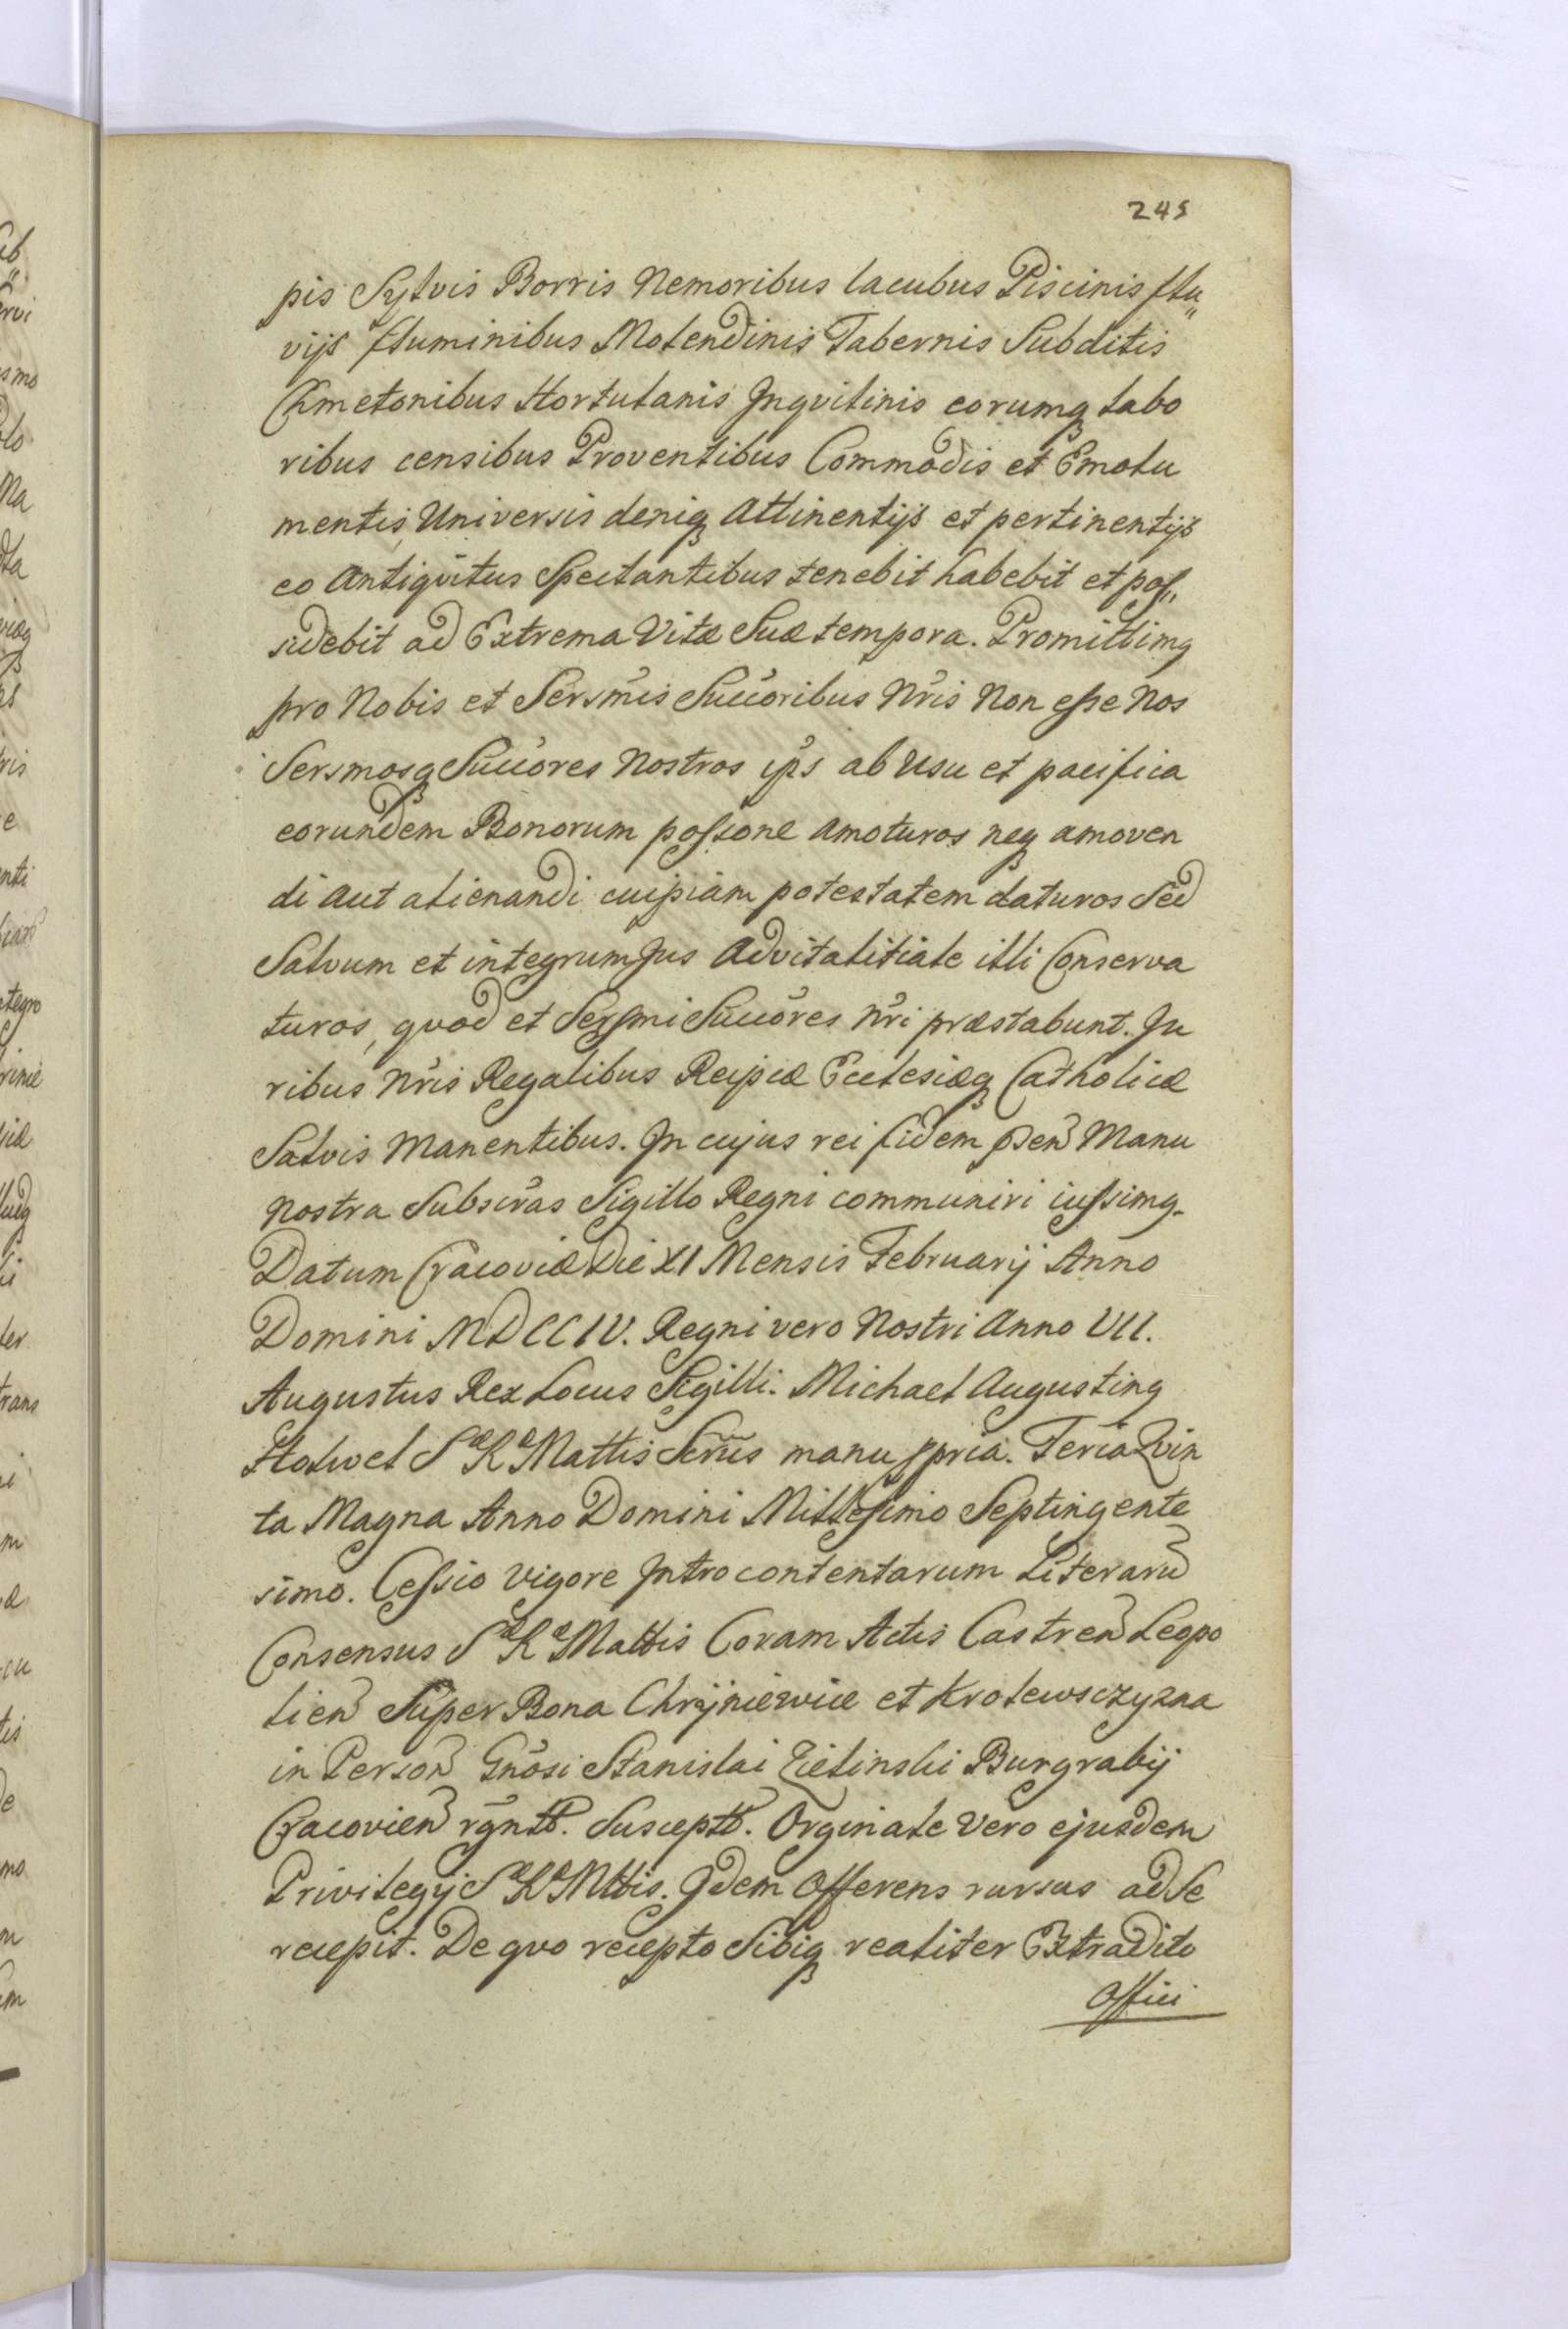 245
pis Sylvis Borris Nemoribus lacubus Piscinis flu„
vijs fluminibus Molendinis Tabernis Subditis
Cmetonibus Hortulanis Inqvilinis eorumq labo
ribus censibus Proventibus Commodis et Emolu
mentis, Universis deniq Attinentijs et pertinentijs
eo Antiqvitus Spectantibus tenebit habebit et pos„
sidebit ad Extrema Vitæ Suæ tempora. Promittimq
pro Nobis et Sersmis Succoribus Nris Non esse Nos
Sersmosq Succores Nostros ips ab Usu et pacifica
eorundem Bonorum possone Amoturos neq amoven
di Aut alienandi cuipiam potestatem daturos Sed
Salvum et integrum Jus Advitalitiale illi Conserva
turos, qvod et Sersmi Succores Nri præstabunt. Ju
ribus Nris Regalibus Reipcæ Ecclesiæq Catholicæ
Salvis Manentibus. In cujus rei fidem psen Manu
Nostra Subscras Sigillo Regni communiri iussimq.
Datum Cracoviæ Die XI Mensis Februarij Anno
Domini MDCCIV. Regni vero Nostri Anno VII.
Augustus Rex Locus Sigilli. Michael Augustinq
Holwel S R Mattis Scrius manu ppria. Feria Qvin
ta Magna Anno Domini Millesimo Septingente
simo. Cessio vigore Introcontentarum Literaru
Consensus S R Mattis Coram Actis Castren Leopo
lien Super Bona Chrÿniewice et Krolewsczyzna
in Person Gnosi Stanislai Zielinski Burgrabij
Cracovien rgntt. Susceptt. Orginale Vero ejusdem
Privilegij S R Mttis. Idem Offerens rursus ad Se
recepit. De qvo recepto Sibiq realiter Extradito
Offici